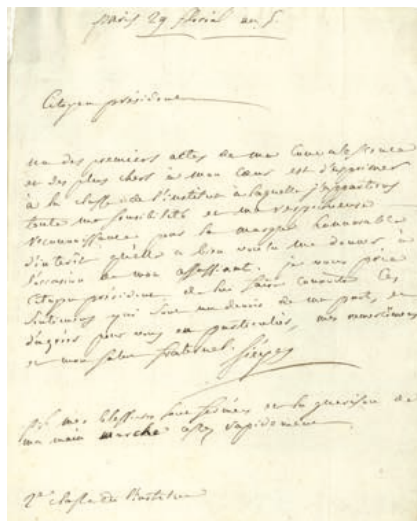 Paris 29 floréal an 5.
Citoyen président
un des premiers actes de ma convalescence
et des plus chers à mon cœur est d'exprimer
à la classe de l'institut à laquelle j'appartiens
toute ma sensibilité et ma respectueuse
reconnaissance pour la marque honorable
d'intérêt qu'elle a bien voulu me donner à
l'occasion de mon assassinat. je vous prie
Citoyen président de lui faire connaitre ces
sentimens qui sont un devoir de ma part, et
d'agréer pour vous en particulier, mes remercimens
et mon salut fraternel. Sieyes
mes blessures sont fermées et la guérison de
ma main marche assez rapidement
2e classe de l'Institut